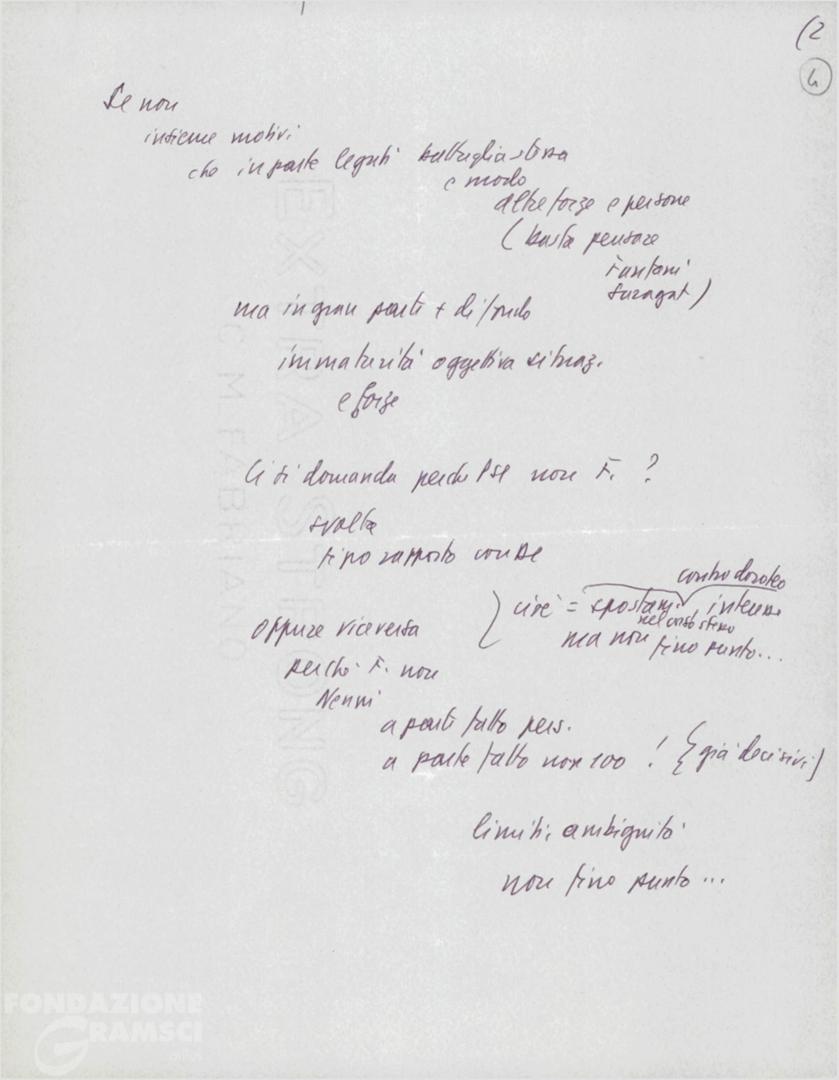 (2
4
Se non
insieme motivi
che in parte legati battaglia stessa
e modo
altre forze e persone
(basta pensare
Fanfani
Saragat)
ma in gran parte + di fondo
immaturità oggettiva situaz.
e forze
Ci si domanda perché PSI non F. ?
svolta
tipo rapporto con DC
contro doroteo
cioè = spostam. interno
nel corso stesso
ma non fino punto...
oppure viceversa
perché F. non
Nenni
a parte fatto pers.
a parte fatto non 100 ! {già decisivi}
limiti, ambiguità
non fino punto...
EXTRA STRONG
C.M. FABRIANO
FONDAZIONE
GRAMSCI
onlus